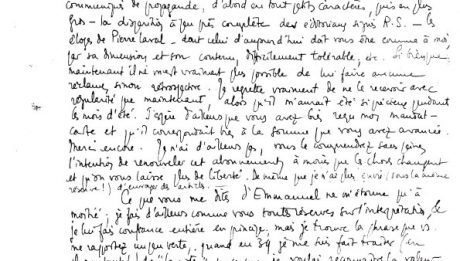 communiqués de propagande, d'abord en tout petits caractères, puis en plus
gros — la disparition à peu près complète des éditoriaux signés R.S. — les
éloges de Pierre Laval — dont celui d'aujourd'hui doit vous être comme à moi,
par sa dimension et son contenu, difficilement tolérable, etc. Si bien que
maintenant il ne m'est vraiment plus possible de lui faire aucune
réclame, sinon rétrospective. Je regrette vraiment de ne le recevoir avec
régularité que maintenant, alors qu'il m'aurait été si précieux pendant
les mois d'été. J'espère d'ailleurs que vous avez bien reçu mon mandat-
carte et qu'il correspondait bien à la somme que vous avez avancée.
Merci encore. Je n'ai d'ailleurs pas, vous le comprendrez sans peine,
l'intention de renouveler cet abonnement, à moins que les choses changent
et qu'on vous laisse plus de liberté. De même que je n'ai plus envie (sous la même
réserve !) d'envoyer des articles.
Ce que vous me dites d'Emmanuel ne m'étonne qu'à
moitié ; je fais d'ailleurs comme vous toutes réserves sur l'interprétation. Je
lui fais confiance entière en principe, mais je trouve la phrase que vs.
me rapportez un peu verte, quand en 39 je me suis fait traiter
je voulais reconnaître la valeur